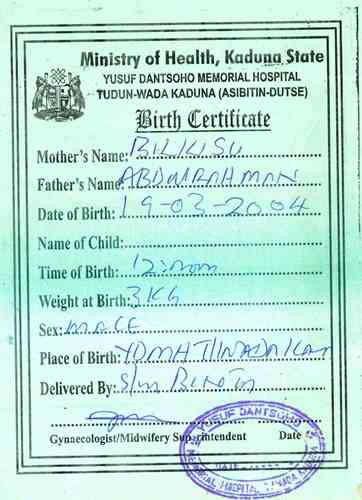 Ministry of Health, Kaduna State
YUSUF DANTSOHO MEMORIAL HOSPITAL
TUDUN-WADA KADUNA (ASIBITIN-DUTSE)
Birth Certificate
Mother's Name: BILKISU
Father's Name: ABDURRAHMAN
Date of Birth: 19-03-2004
Name of Child:
Time of Birth:
Weight at Birth: 3KG
Sex: MALE
Place of Birth: YDMH T/WADA KAD
Delivered By: S/M
Gynaecologist/Midwifery Superintendent Date
YUSUF DANTSOHO
MEMORIAL HOSPITAL T/WADA KADUNA
DATE